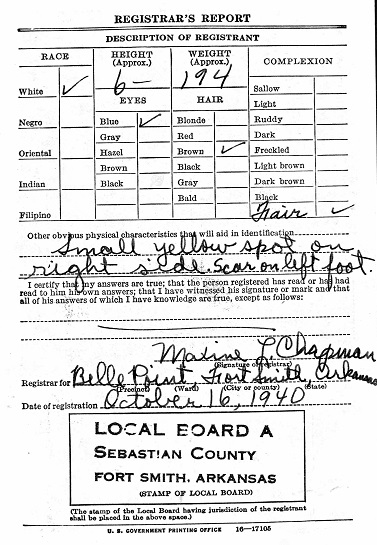 REGISTRAR'S REPORT
DESCRIPTION OF REGISTRANT
RACE
HEIGHT
(Approx.)
WEIGHT
(Approx.)
COMPLEXION
6 —
194
White ✓
EYES
HAIR
Sallow
Light
Negro
Blue ✓
Blonde
Ruddy
Gray
Red
Dark
Oriental
Hazel
Brown ✓
Freckled
Brown
Black
Light brown
Indian
Black
Gray
Dark brown
Bald
Black
Filipino
Fair ✓
Other obvious physical characteristics that will aid in identification
Small yellow spot on
right side. Scar on left foot.
I certify that my answers are true; that the person registered has read or has had
read to him his own answers; that I have witnessed his signature or mark and that
all of his answers of which I have knowledge are true, except as follows:
Maxine L. Chapman
(Signature of registrar)
Registrar for Belle Point Fort Smith, Arkansas
(Precinct) (Ward) (City or county) (State)
Date of registration October 16, 1940
LOCAL BOARD A
SEBASTIAN COUNTY
FORT SMITH, ARKANSAS
(STAMP OF LOCAL BOARD)
(The stamp of the Local Board having jurisdiction of the registrant
shall be placed in the above space.)
U. S. GOVERNMENT PRINTING OFFICE 16—17105